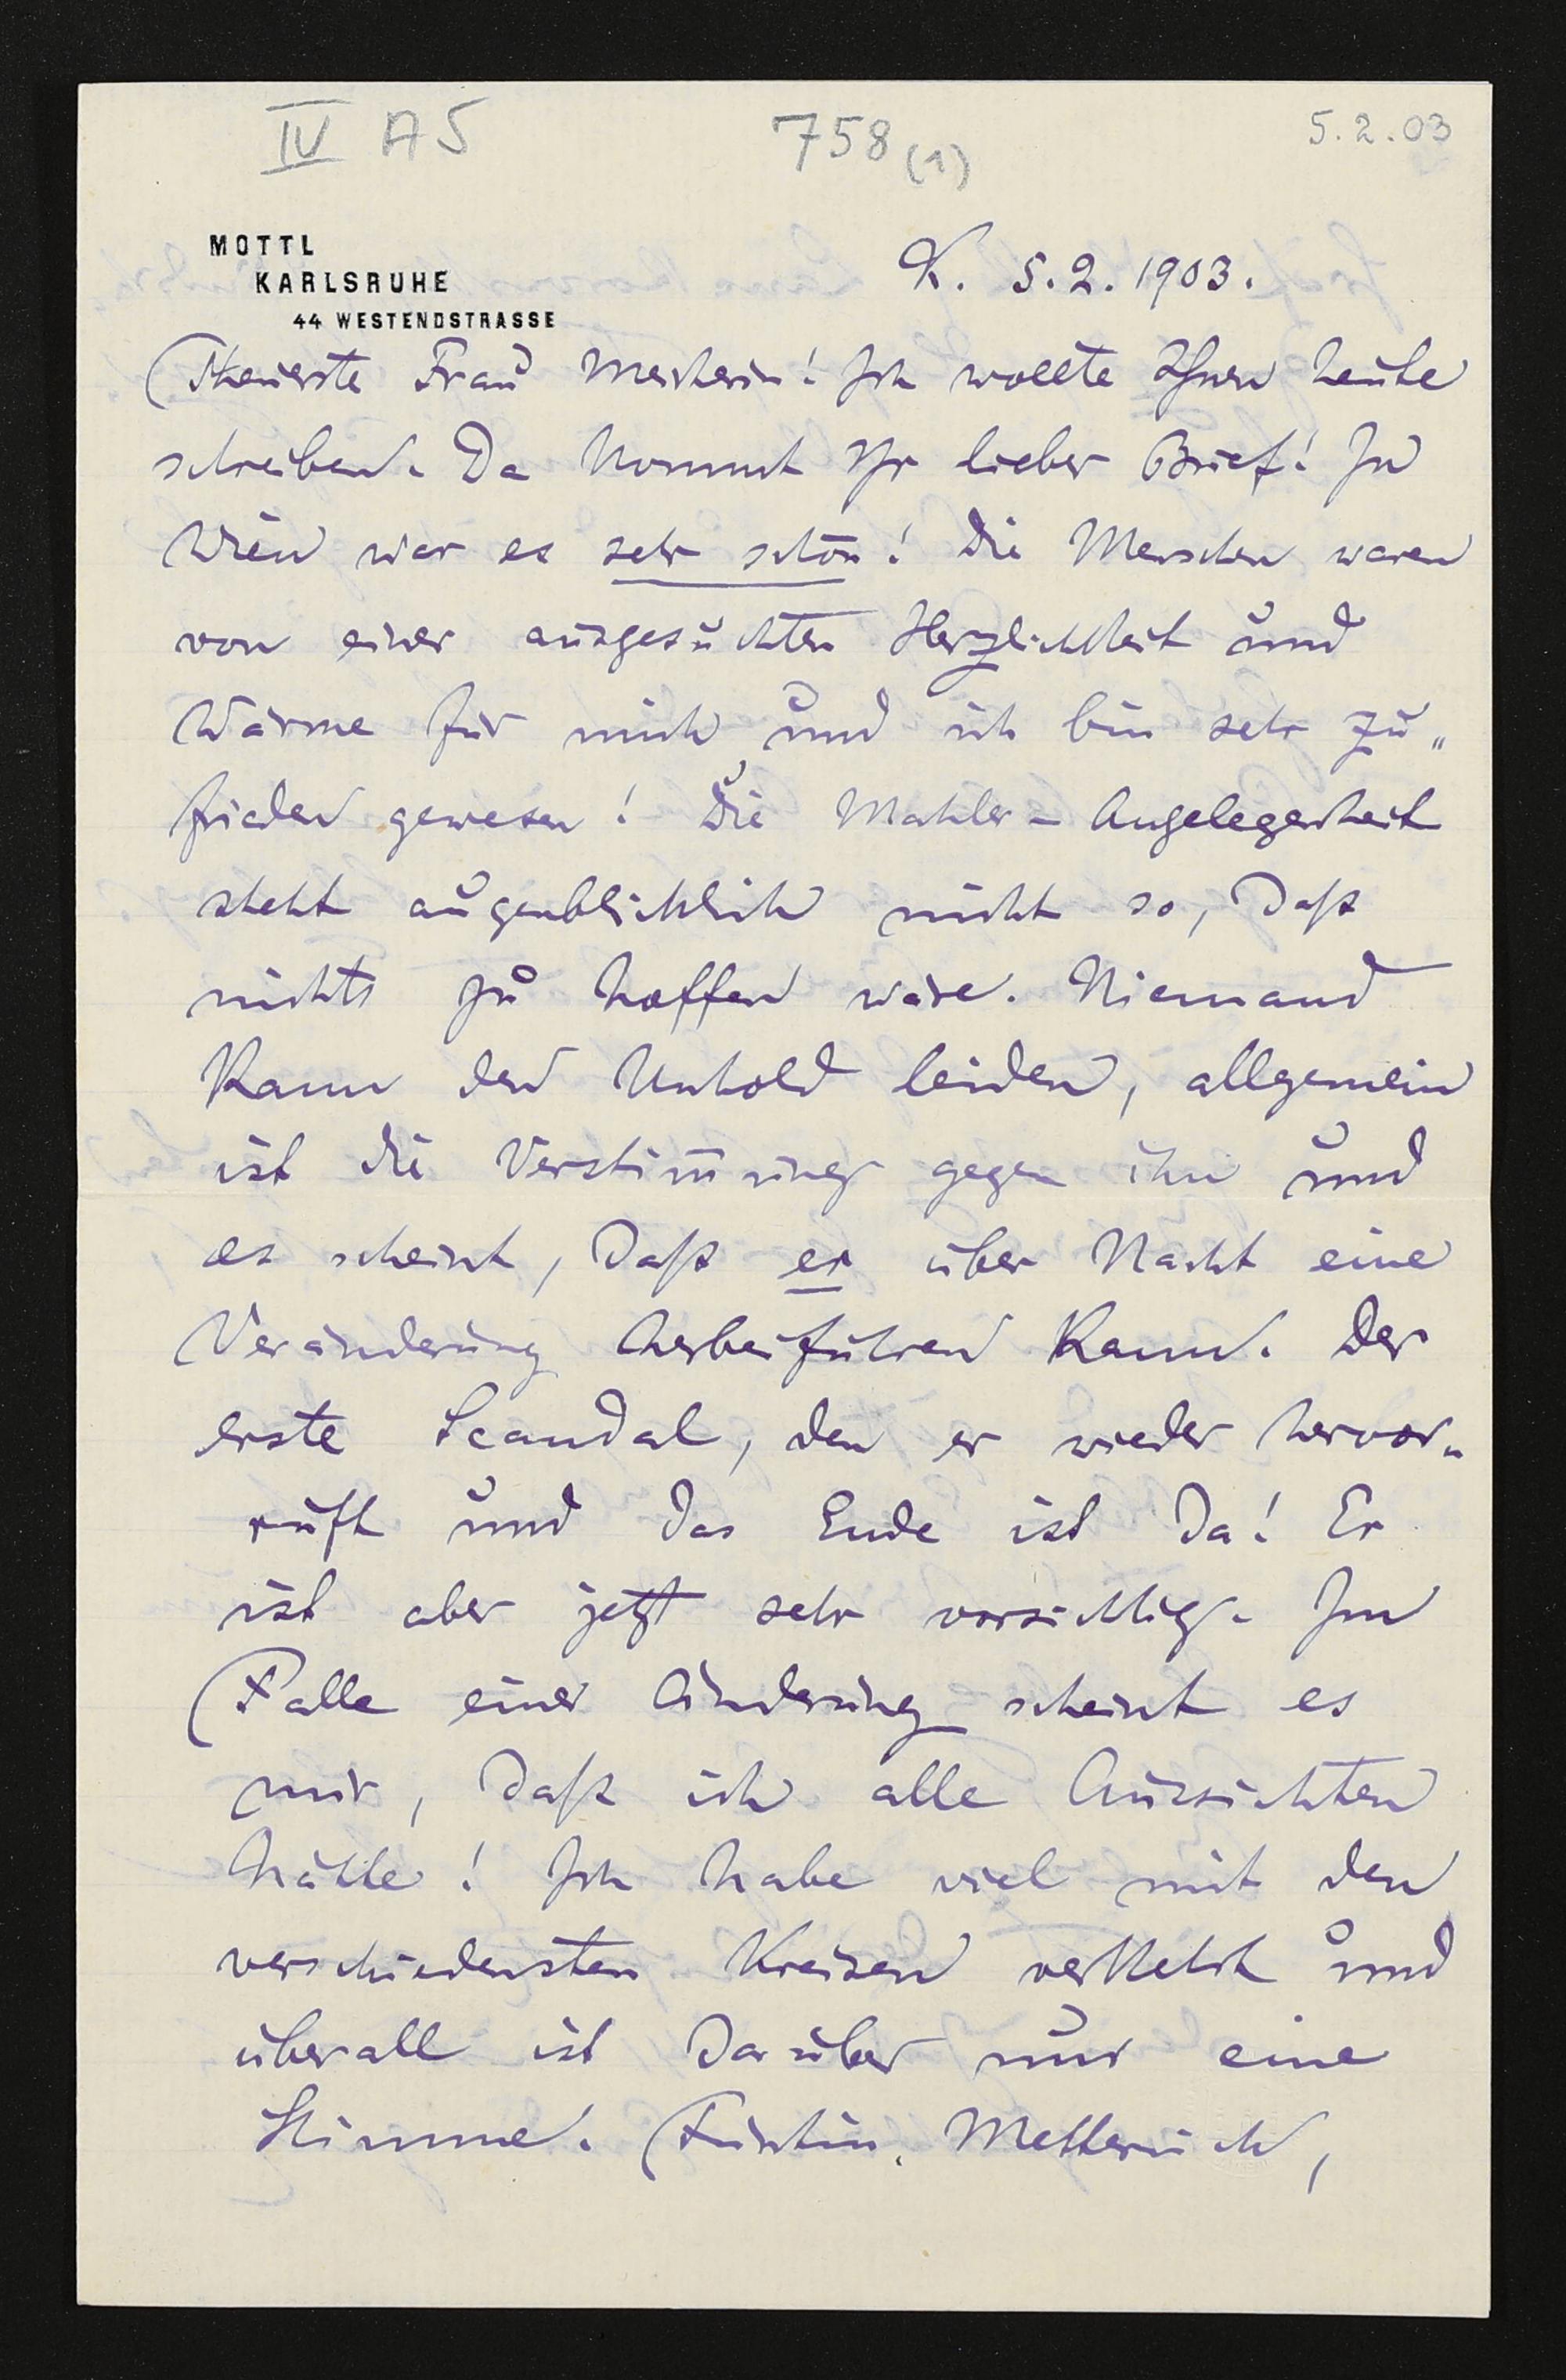 IV A5 758 (1) 5.2.03
MOTTL
KARLSRUHE
44 WESTENDSTRASSE
K. 5.2.1903.
Theuerste Frau Meisterin! Ich wollte Ihnen heute
schreiben. Da kommt Ihr lieber Brief! In
Wien war es sehr schön! Die Menschen waren
von einer ausgesuchten Herzlichkeit und
Wärme für mich und ich bin sehr zu„
frieden gewesen! Die Mahler-Angelegenheit
steht augenblicklich nicht so, daß
nichts zu hoffen wäre. Niemand
kann den Unhold leiden, allgemein
ist die Verstim̅ung gegen ihn und
es scheint, daß er über Nacht eine
Veränderung herbeiführen kann. Der
erste Scandal, den er wieder hervor„
ruft und das Ende ist da! Er
ist aber jetzt sehr vorsichtig. Im
Falle einer Änderung scheint es
mir, daß ich alle Aussichten
hätte! Ich habe viel mit den
verschiedensten Kreisen verkehrt und
überall ist darüber nur eine
Stimme. Fürstin Metternich,